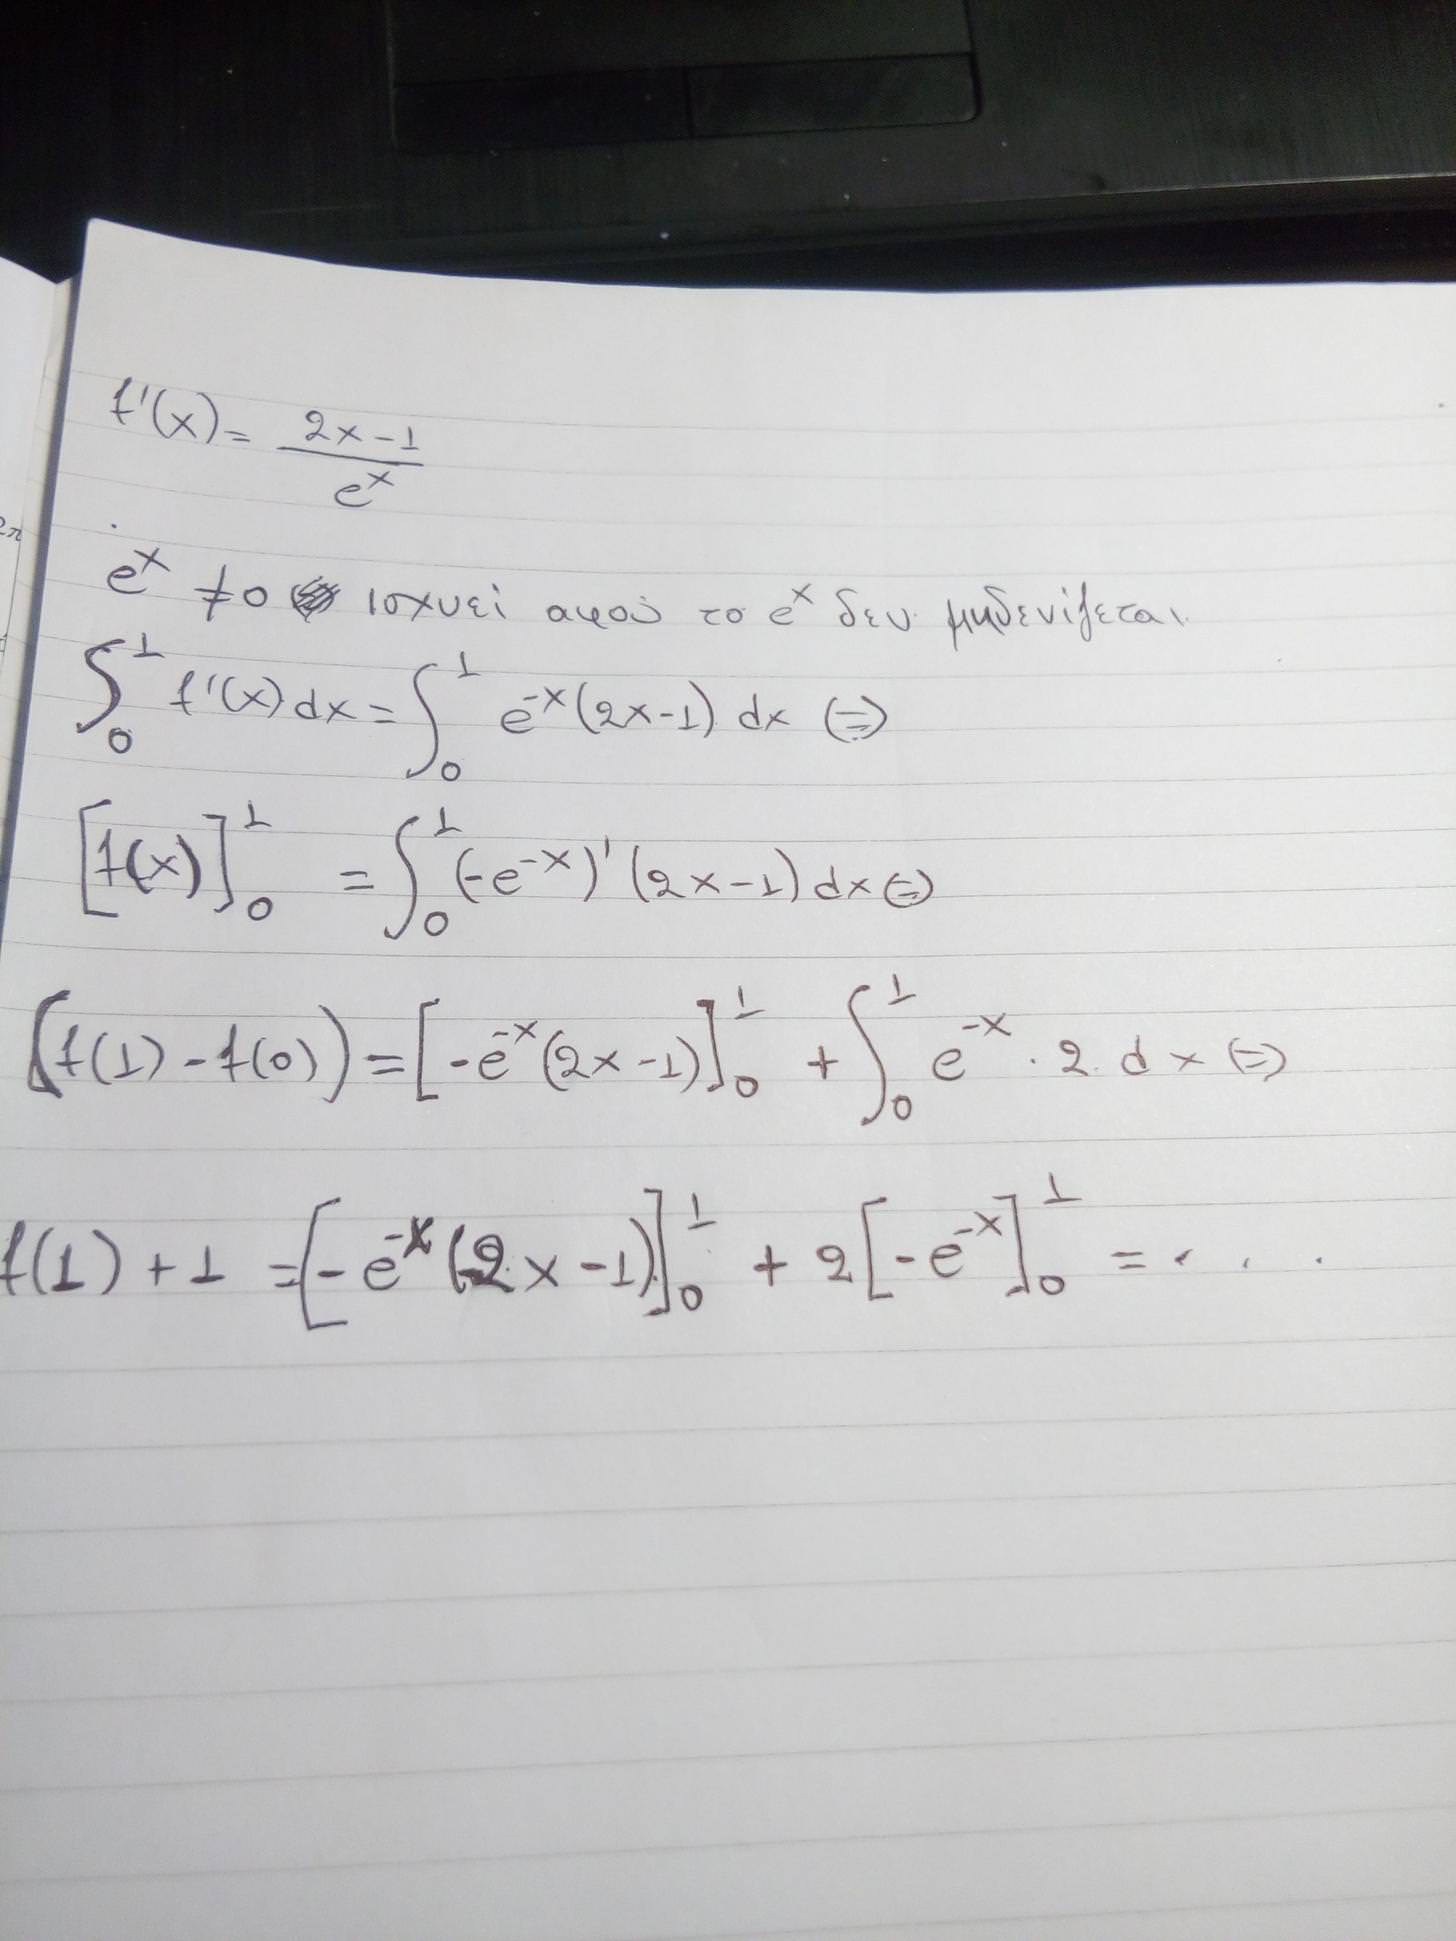 f'(x) = (2x-1)/e^x
e^x ≠ 0 ισχυεί αφού το e^x δεν μηδενίζεται.
∫_0^1 f'(x) dx = ∫_0^1 e^{-x}(2x-1) dx (=)
[f(x)]_0^1 = ∫_0^1 (-e^{-x})'(2x-1) dx (=)
(f(1) - f(0)) = [-e^{-x}(2x-1)]_0^1 + ∫_0^1 e^{-x} · 2. dx (=)
f(1) + 1 = [-e^{-x}(2x-1)]_0^1 + 2[-e^{-x}]_0^1 = . . .